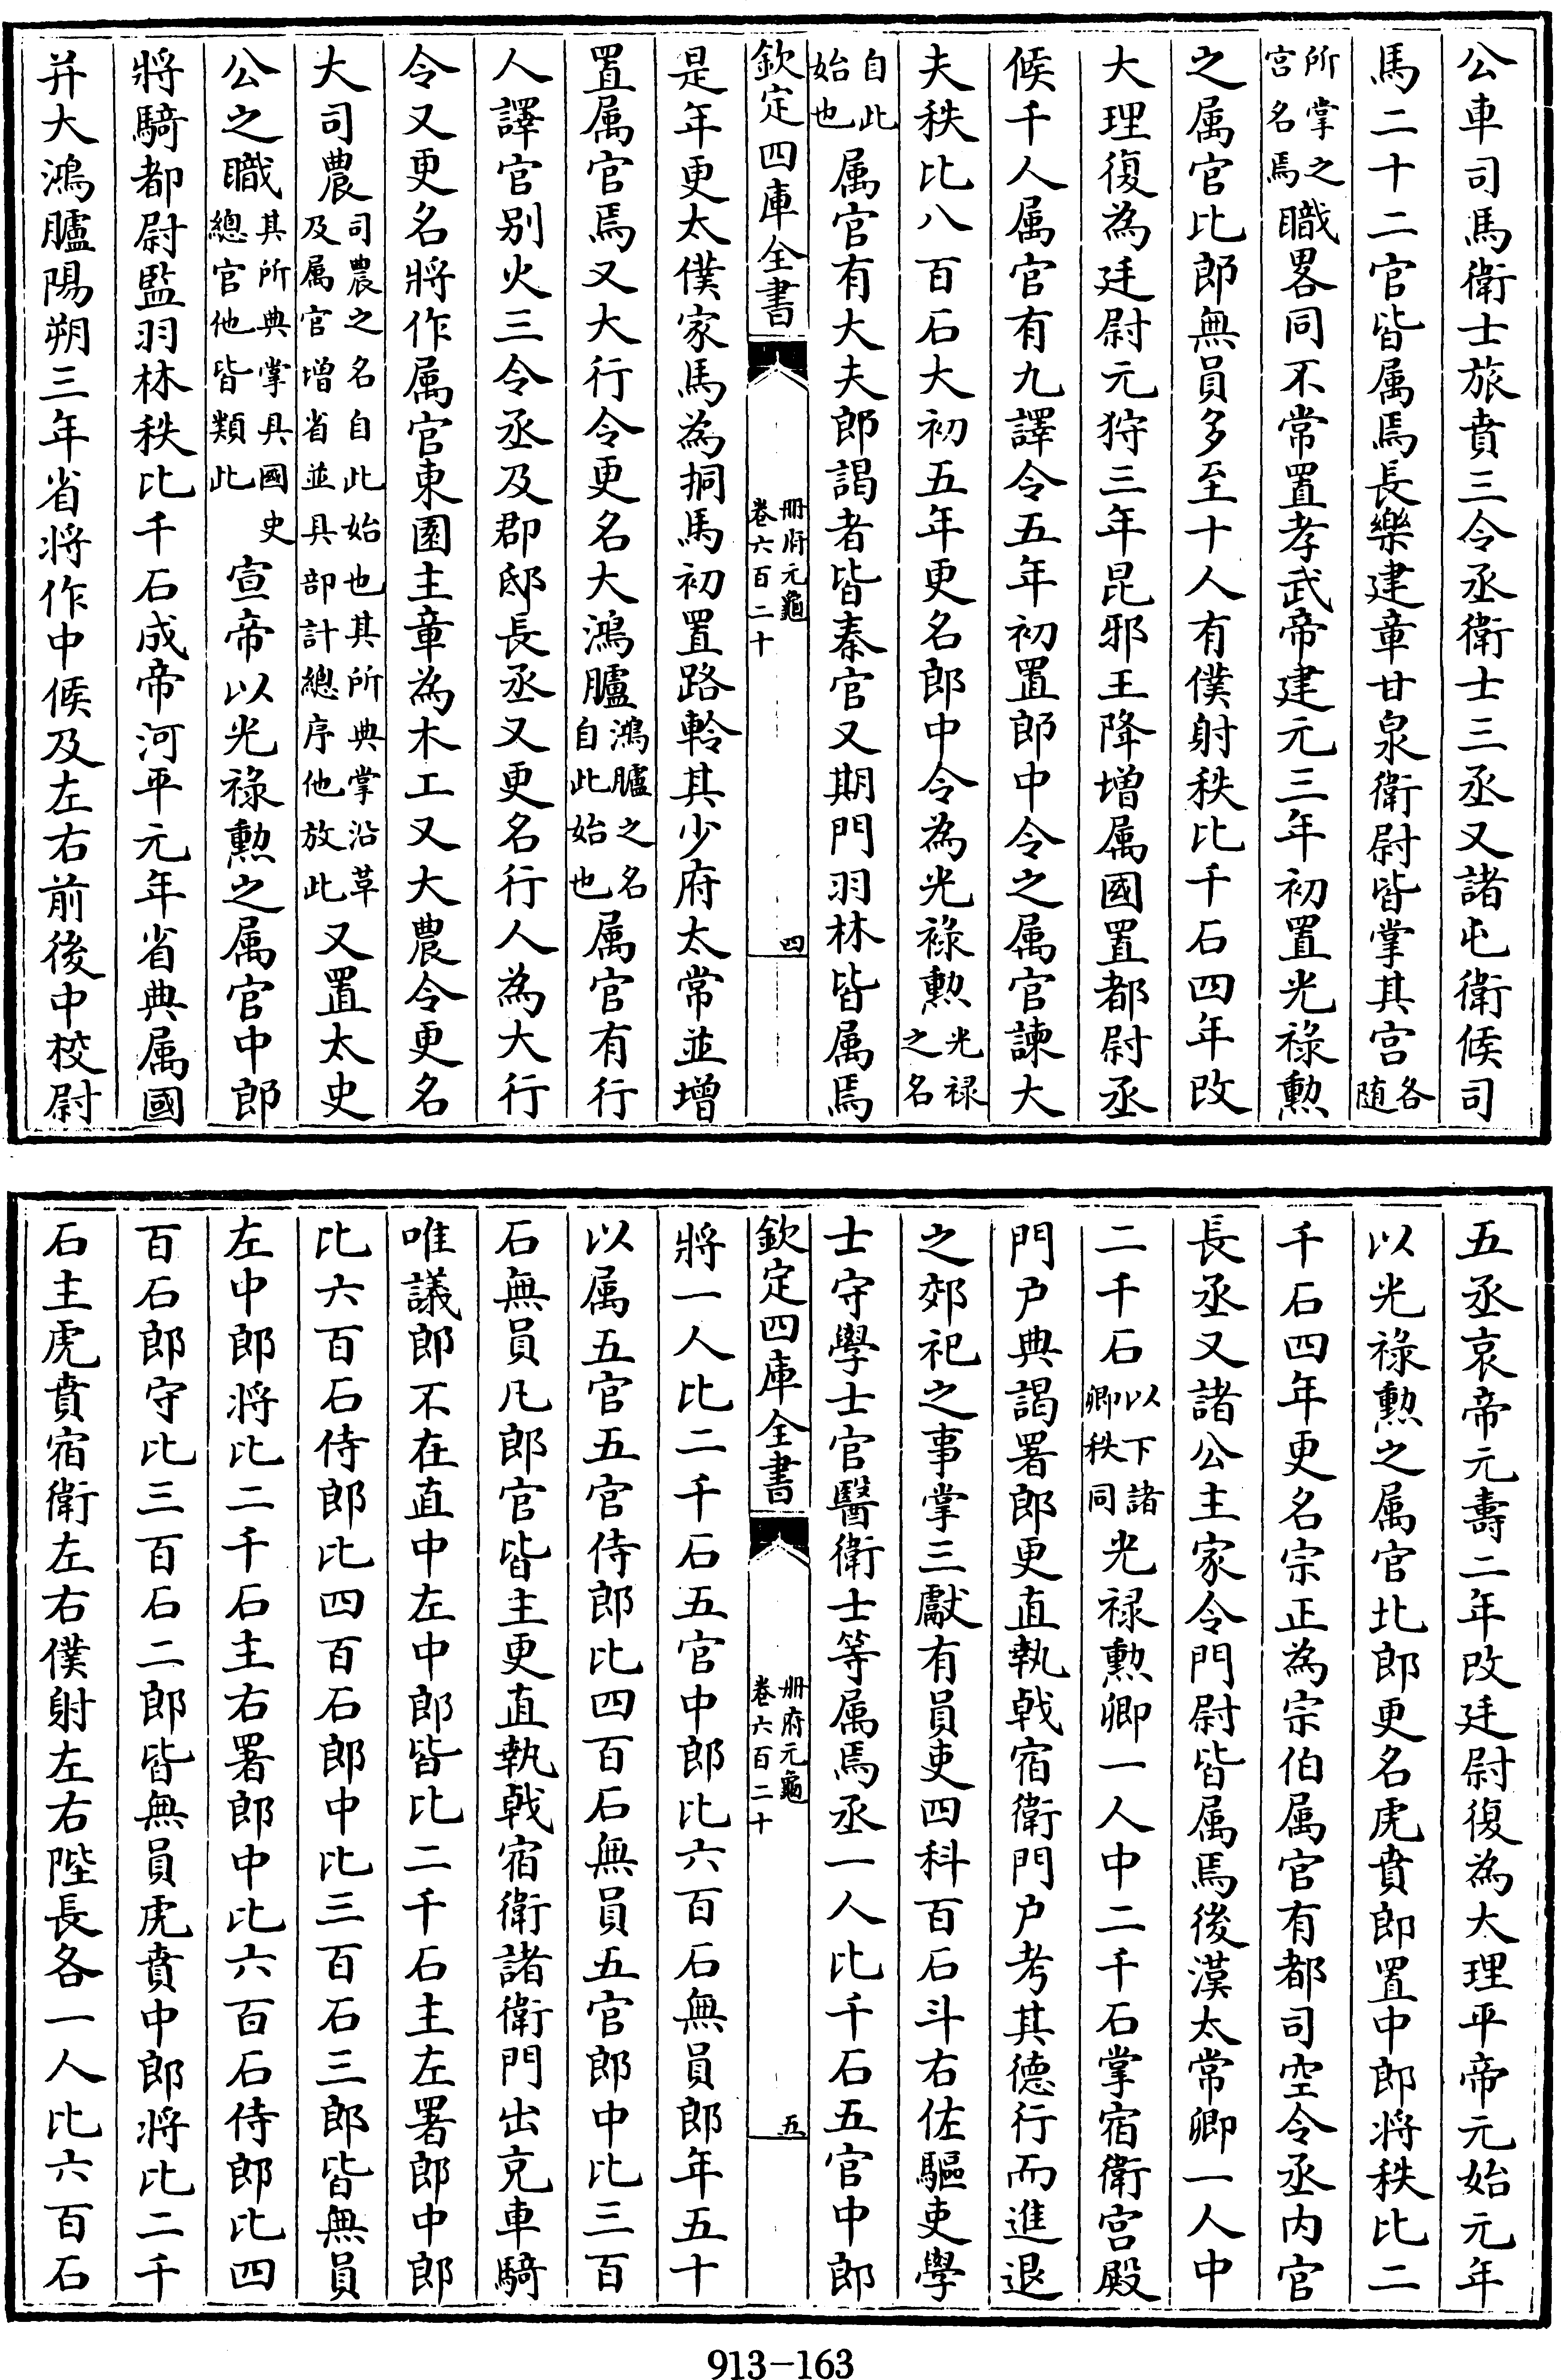 公車司馬衛士旅賁三令丞衛士三丞又諸屯衛候司
馬二十二官皆属焉長樂建章甘泉衛尉皆掌其宫各随
所掌之宫名焉職畧同不常置孝武帝建元三年初置光祿勲
之属官比郎無員多至十人有僕射秩比千石四年改
大理復為廷尉元狩三年昆邪王降增属國置都尉丞
候千人属官有九譯令五年初置郎中令之属官諫大
夫秩比八百石大初五年更名郎中令為光祿勲光禄之名
自此始也属官有大夫郎謁者皆秦官又期門羽林皆属焉
欽定四庫全書
冊府元龜卷六百二十
四
是年更太僕家馬為挏馬初置路軨其少府太常並增
置属官焉又大行令更名大鴻臚鴻臚之名自此始也属官有行
人譯官别火三令丞及郡邸長丞又更名行人為大行
令又更名將作属官東園主章為木工又大農令更名
大司農司農之名自此始也其所典掌沿革及属官增省並具部計總序他放此又置太史
公之職其所典掌具國史總官他皆類此宣帝以光祿勲之属官中郎
將騎都尉監羽林秩比千石成帝河平元年省典属國
并大鴻臚陽朔三年省將作中候及左右前後中校尉
五丞哀帝元壽二年改廷尉復為大理平帝元始元年
以光祿勲之属官比郎更名虎賁郎置中郎將秩比二
千石四年更名宗正為宗伯属官有都司空令丞内官
長丞又諸公主家令門尉皆属焉後漢太常卿一人中
二千石以下諸卿秩同光禄勲卿一人中二千石掌宿衛宫殿
門户典謁署郎更直執戟宿衛門户考其德行而進退
之郊祀之事掌三獻有員吏四科百石斗右佐驅吏學
士守學士官醫衛士等属焉丞一人比千石五官中郎
欽定四庫全書
冊府元龜卷六百二十
五
將一人比二千石五官中郎比六百石無員郎年五十
以属五官五官侍郎比四百石無員五官郎中比三百
石無員凡郎官皆主更直執戟宿衛諸衛門出充車騎
唯議郎不在直中左中郎皆比二千石主左署郎中郎
比六百石侍郎比四百石郎中比三百石三郎皆無員
左中郎將比二千石主右署郎中比六百石侍郎比四
百石郎守比三百石二郎皆無員虎賁中郎將比二千
石主虎賁宿衛左右僕射左右陛長各一人比六百石
913-163